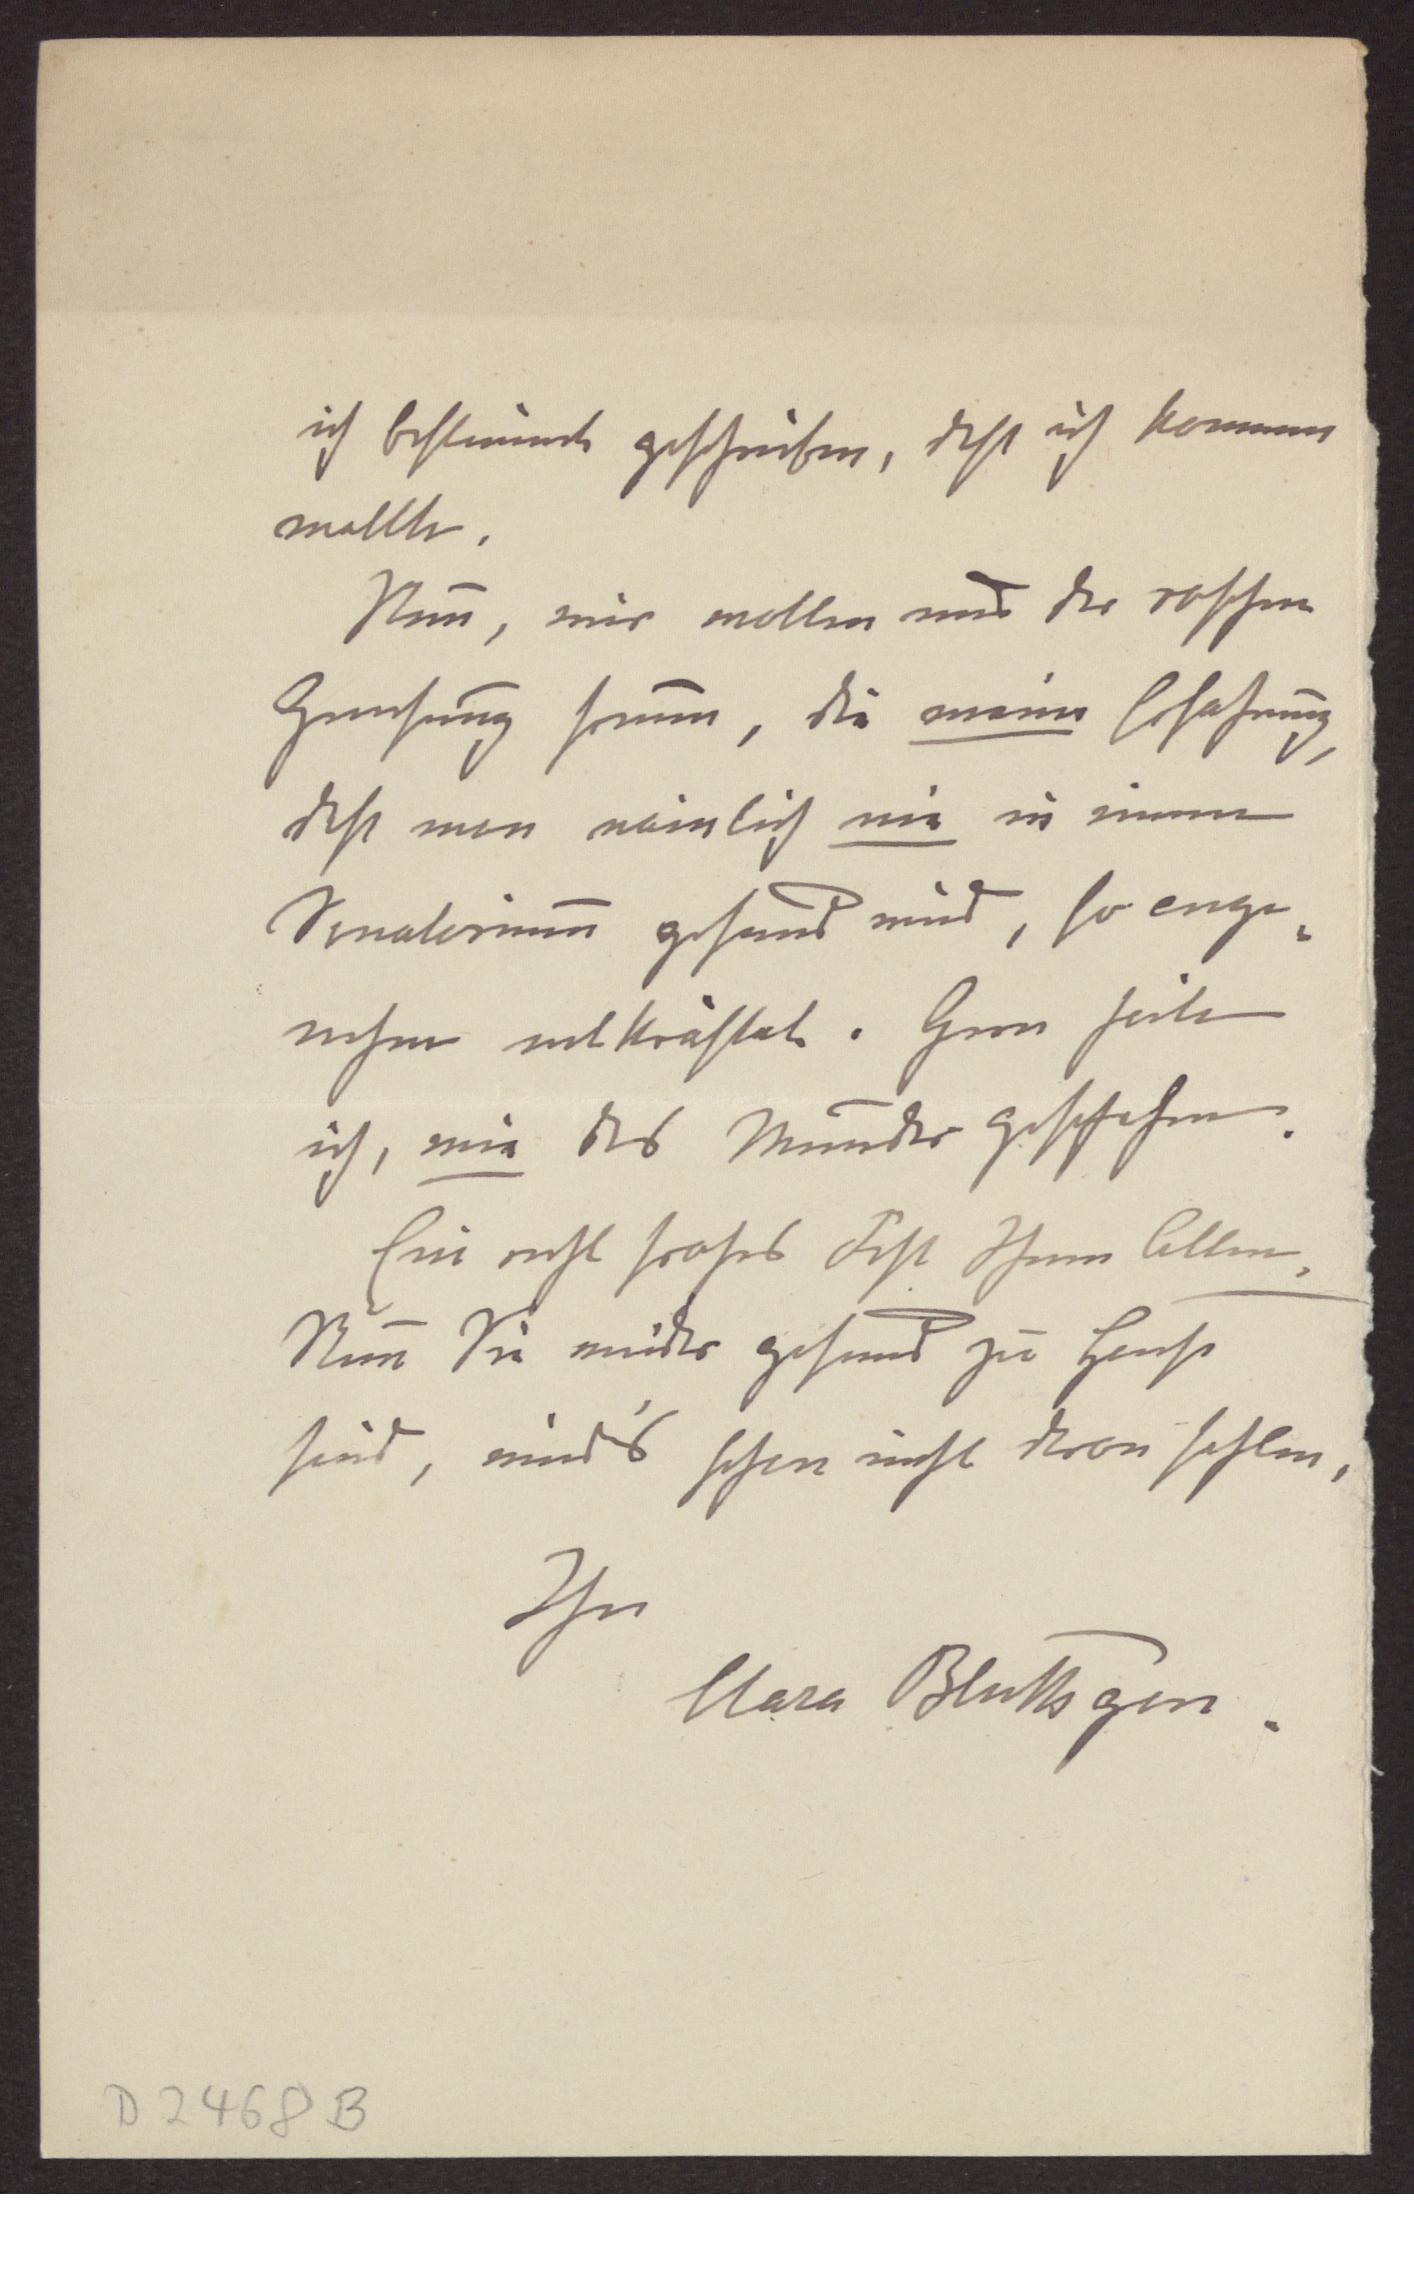 ich bestimmt geschrieben, daß ich kommen
wollte.
Nun, wir wollen uns der raschen
Genesung freuen, die meine Erfahrung,
daß man nämlich nie in einem
Sanatorium gesund wird, so ange-
nehm entkräftet. Gern hörte
ich, wie das Wunder geschehen.
Ein recht frohes Fest Ihnen Allen.
Nun Sie wieder gesund zu Hause
sind, wird's schon nicht daran fehlen.
Ihre
Clara Blüthgen.
D 2468 B